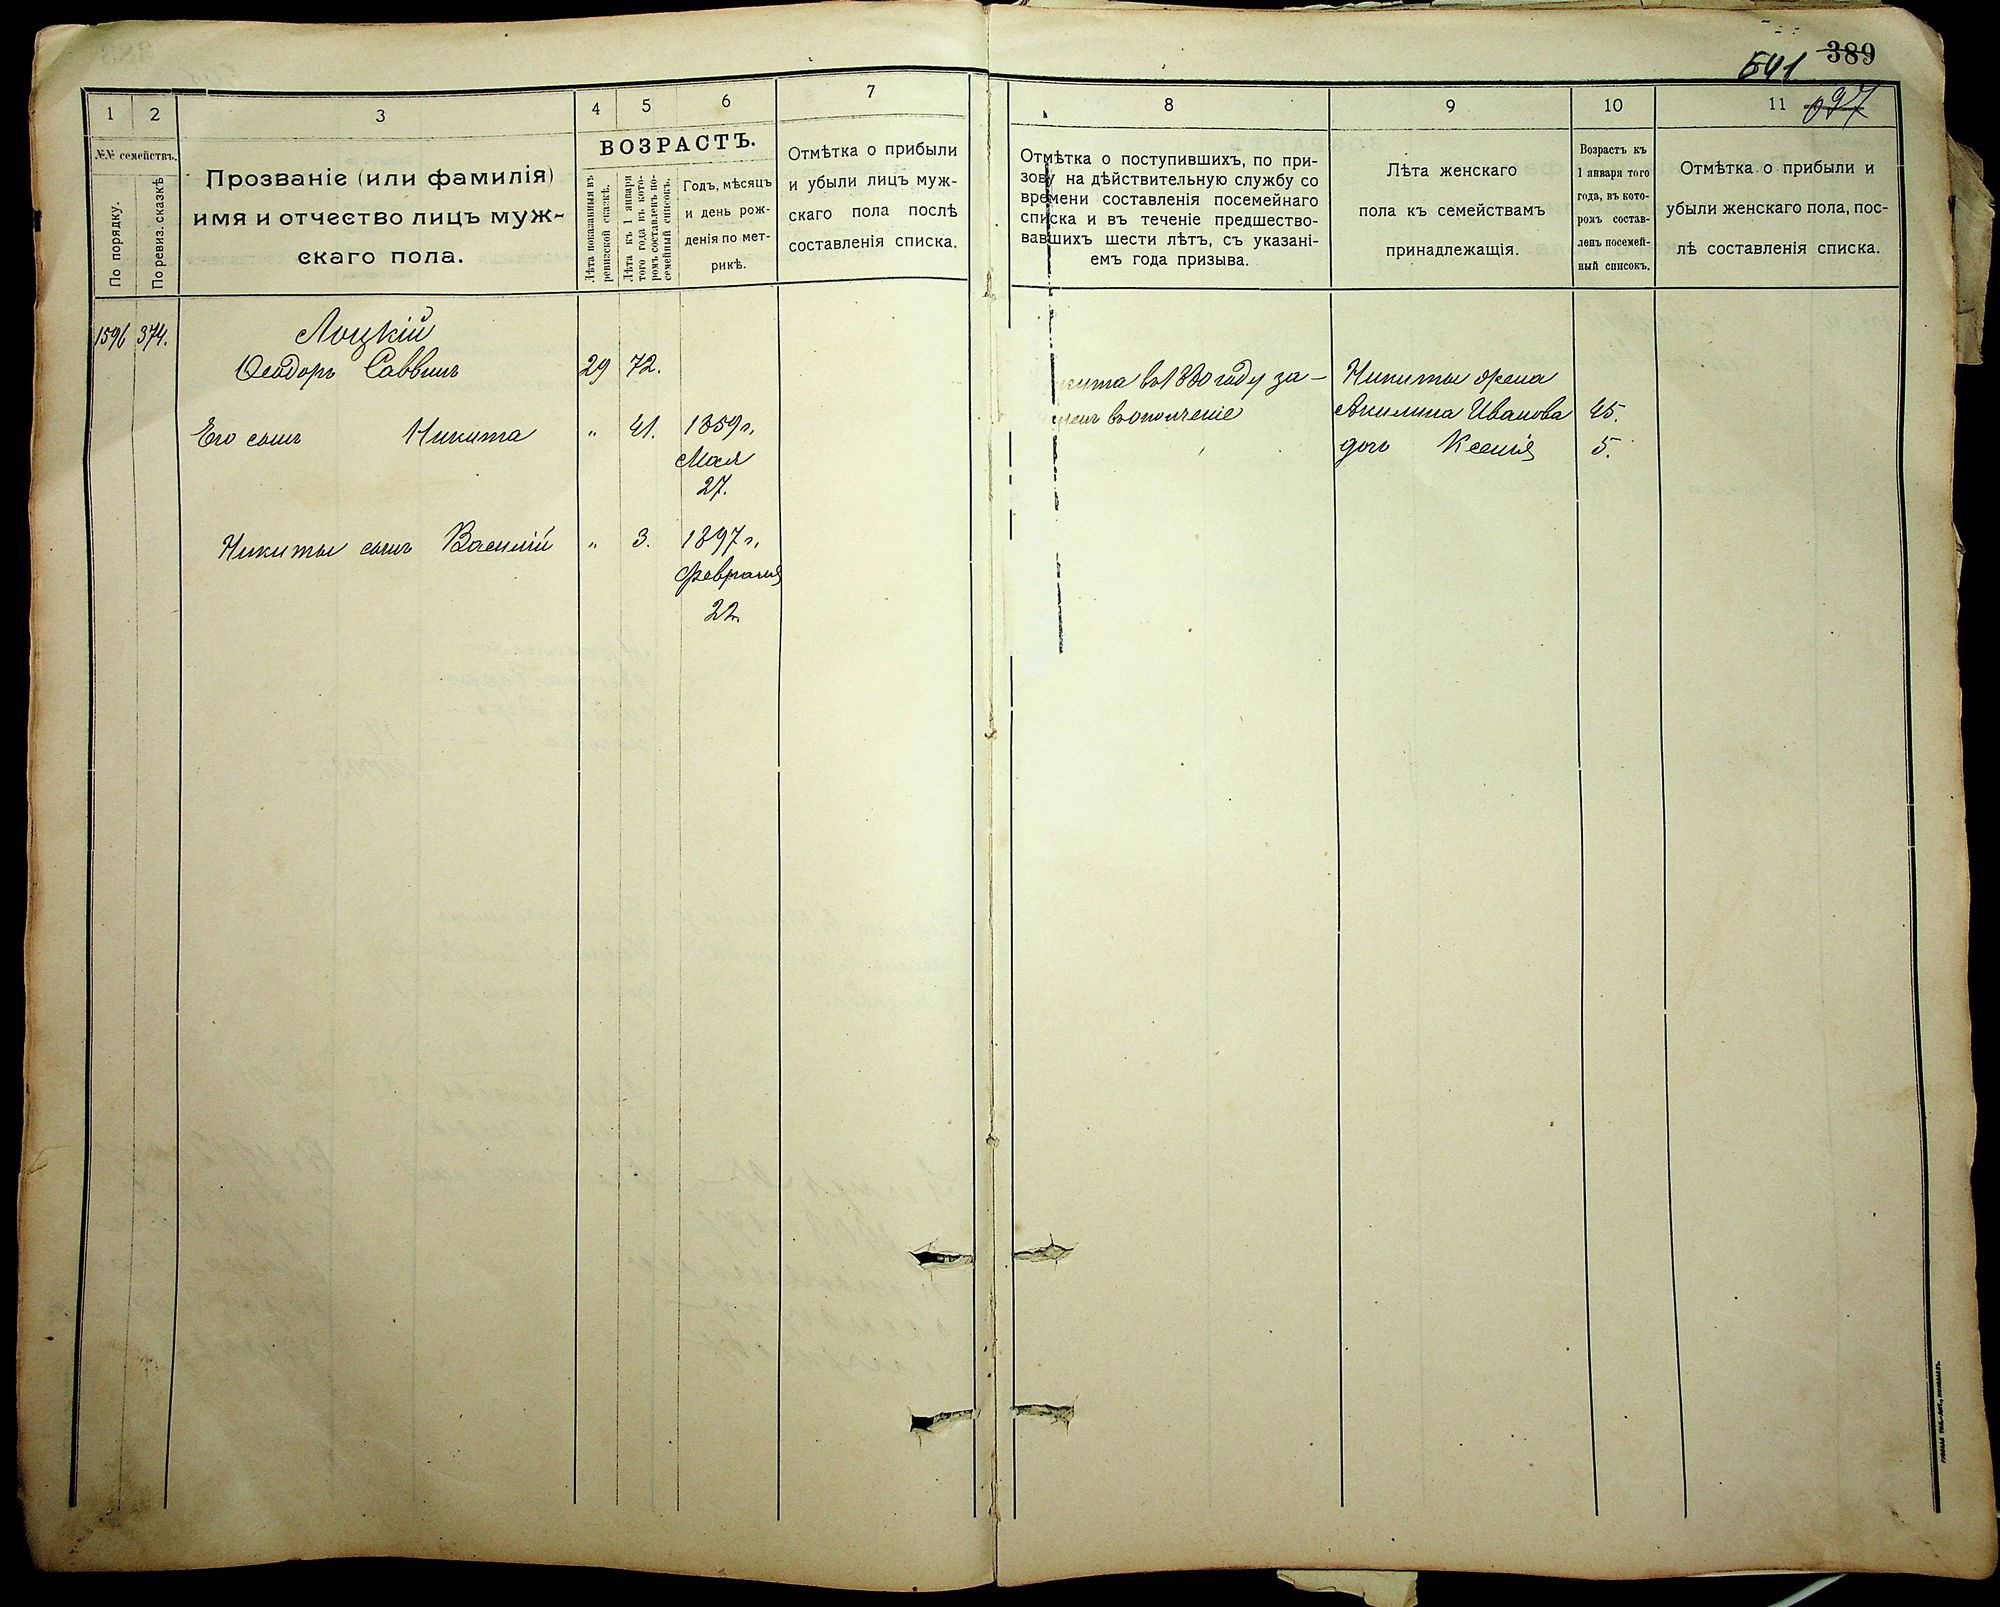 389
541
097
1
2
3
4
5
6
7
№№ семействъ.
По порядку.
По ревиз. сказкѣ
Прозваніе (или фамилія)
имя и отчество лицъ муж-
скаго пола.
ВОЗРАСТЪ.
Лѣта показанныя въ
ревизской сказкѣ.
Лѣта къ 1 января
того года въ кото-
ромъ составленъ по-
семейный списокъ.
Годъ, мѣсяцъ
и день рож-
денія по мет-
рикѣ.
Отмѣтка о прибыли
и убыли лицъ муж-
скаго пола послѣ
составленія списка.
1596 374.
Лоцкій
Ѳеодоръ Саввинъ 29 72.
Его сынъ Никита " 41. 1859 г.
Мая
27.
Никиты сынъ Василій " 3. 1897 г.
Февраля
22.
8
9
10
11
Отмѣтка о поступившихъ, по при-
зову на дѣйствительную службу со
времени составленія посемейнаго
списка и въ теченіе предшество-
вавшихъ шести лѣтъ, съ указані-
емъ года призыва.
Лѣта женскаго
пола къ семействамъ
принадлежащія.
Возрастъ къ
1 января того
года, въ кото-
ромъ состав-
ленъ посемей-
ный списокъ.
Отмѣтка о прибыли и
убыли женскаго пола, пос-
лѣ составленія списка.
кита въ 1880 году за-
ленъ въ ополченіе
Никиты жена
Акилина Иванова 45.
дочь Ксенія 5.